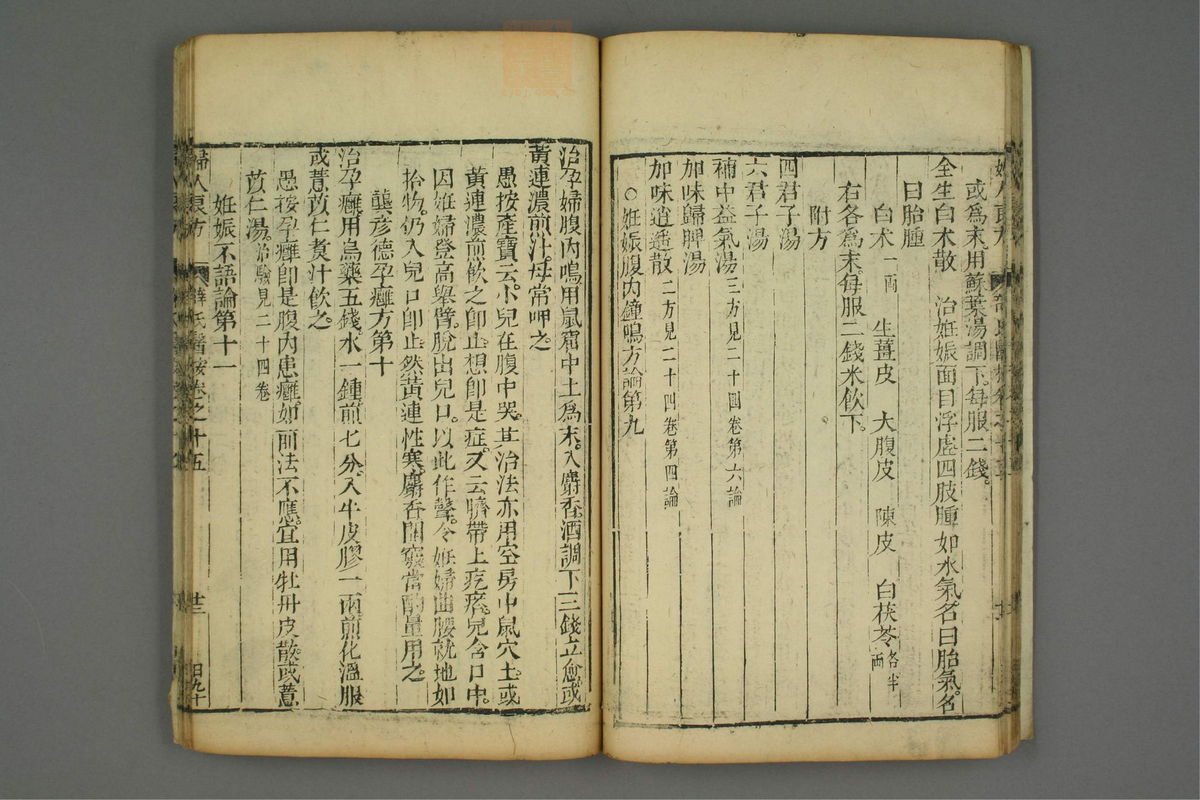 或爲末用蘇葉湯調下每服二錢。
全生白术散　治姙娠面目浮虛四肢腫如水氣名曰胎氣。名
曰胎腫
白术一兩　生薑皮　大腹皮　陳皮　白茯苓各半兩
右各爲末每服二錢米飲下。
附方
四君子湯
六君子湯
補中益氣湯三方見二十四卷第六論
加味歸脾湯
加味逍遥散二方見二十四卷第四論
○姙娠腹内鐘鳴方論第九
治孕婦腹内鳴用鼠窟中土爲末。入麝香酒調下三錢立愈或
黃連濃煎汁。母常呷之。
愚按產寶云。小兒在腹中哭。其治法亦用空房中鼠穴土。或
黃連濃煎飲之卽止。想卽是症。又云臍帶上疙瘩。兒含口中。
因姙婦登高舉臂。脫出兒口。以此作聲。令姙婦曲腰就地如
拾物。仍入兒口卽止然黃連性寒。麝香開竅當酌量用之。
龔彦德孕癰方第十
治孕癰。用烏藥五錢。水一鍾煎七分。入牛皮膠一兩煎化溫服
或薏苡仁煑汁飲之。
愚按孕癰卽是腹内患癰如前法不應。宜用牡丹皮散。或薏
苡仁湯。治驗見二十四卷
姙娠不語論第十一
婦人良方　薛氏醫按卷之十五